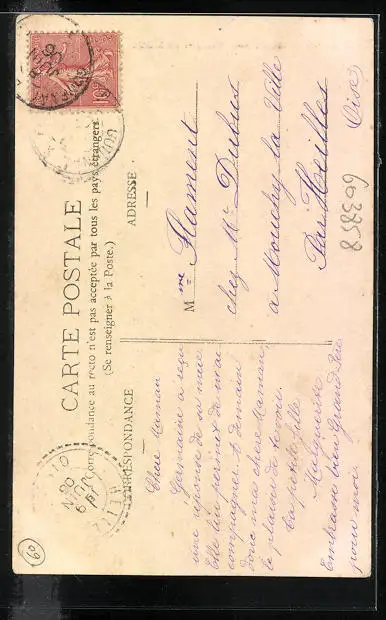 CARTE POSTALE
Correspondance au recto n'est pas acceptée par tous les pays étrangers
(Se renseigner à la Poste.)
CORRESPONDANCE
ADRESSE
Chère Maman
Germaine a reçu
une réponse de sa mère
Elle lui permet de m'ac
compagner. A demain
donc ma chère Maman,
le plaisir de te voir.
Ta petite fille
Marguerite
Embrasse bien Grand Père
pour moi.
Mme Flament
chez Mr Dubus
a Mouchy la Ville
Par Heilles
(Oise)
603858
60